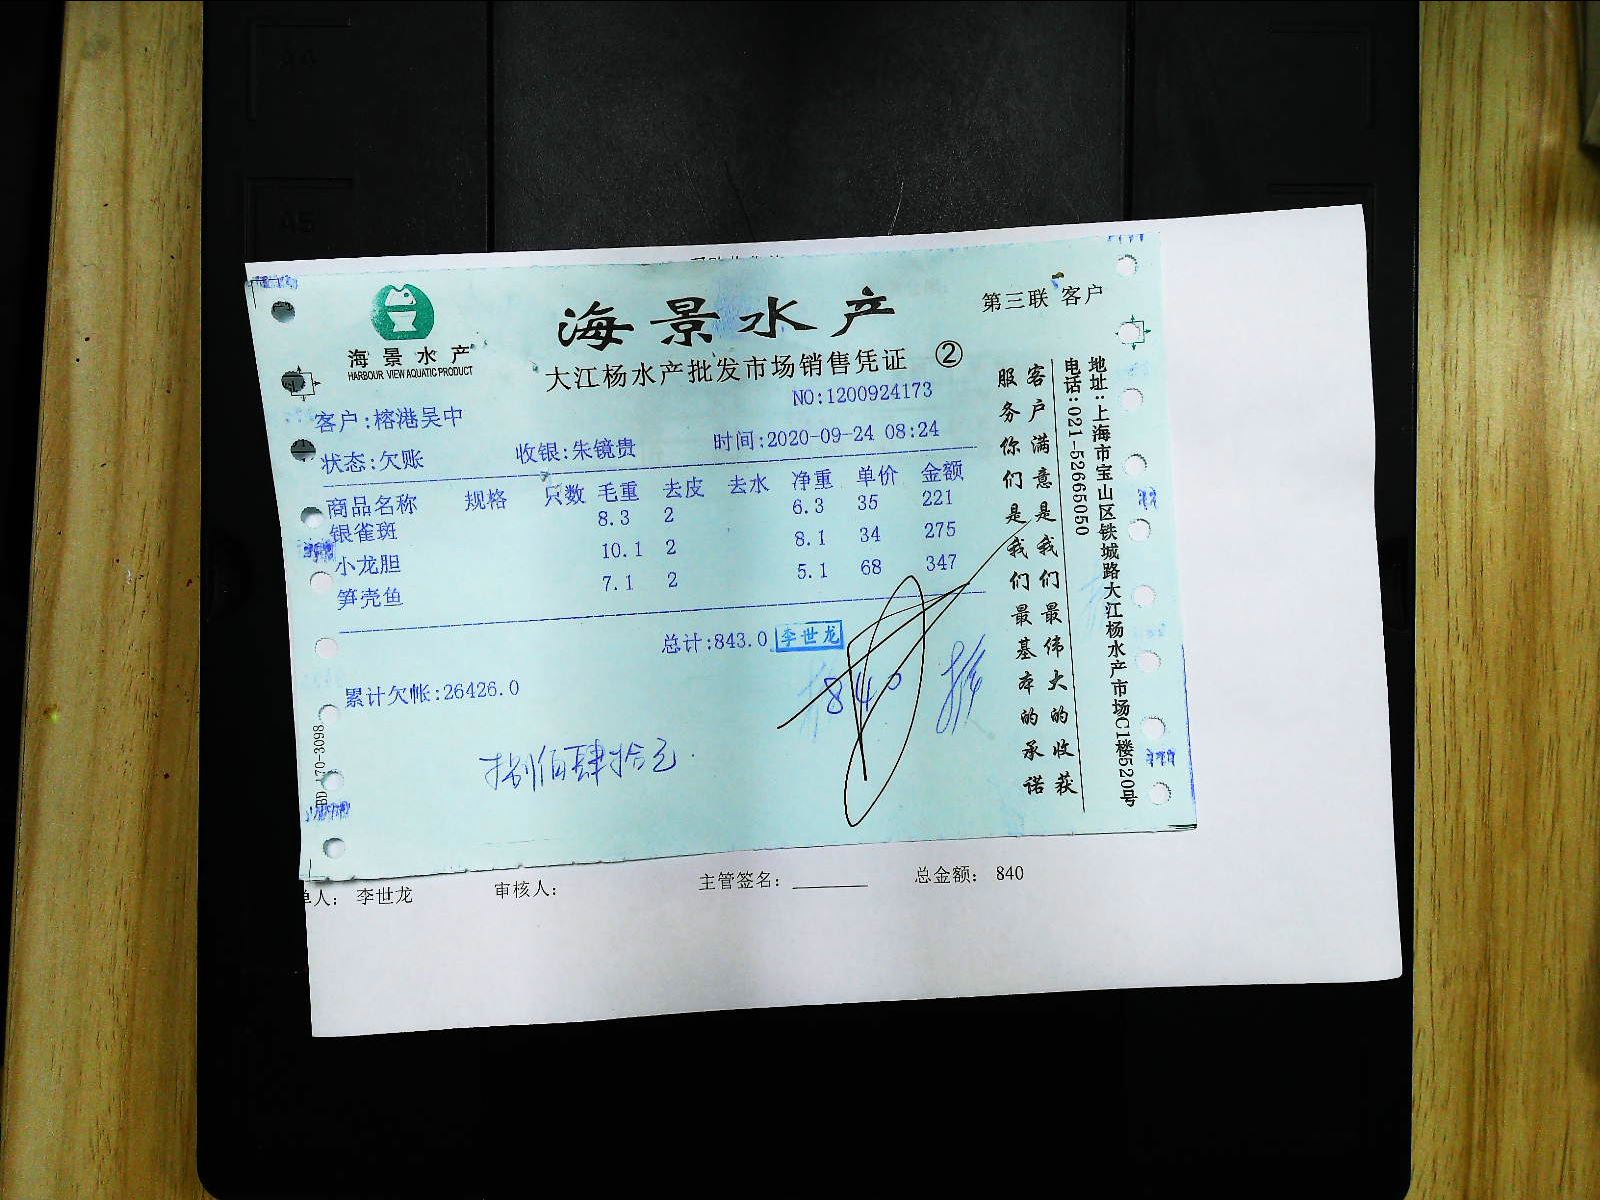 海景水产
HARBOUR VIEW AQUATIC PRODUCT
海景水产
第三联 客户
大江杨水产批发市场销售凭证 ②
NO:1200924173
客户:榕港吴中
状态:欠账 收银:朱镜贵 时间:2020-09-24 08:24
商品名称 规格 只数 毛重 去皮 去水 净重 单价 金额
银雀斑 8.3 2 6.3 35 221
小龙胆 10.1 2 8.1 34 275
笋壳鱼 7.1 2 5.1 68 347
总计:843.0 李世龙
累计欠帐:26426.0
840
捌佰肆拾元
客户满意是我们最伟大的收获
服务你们是我们最基本的承诺
地址:上海市宝山区铁城路大江杨水产市场C1楼520号
电话:021-52665050
单人: 李世龙 审核人: 主管签名: 总金额: 840
A5